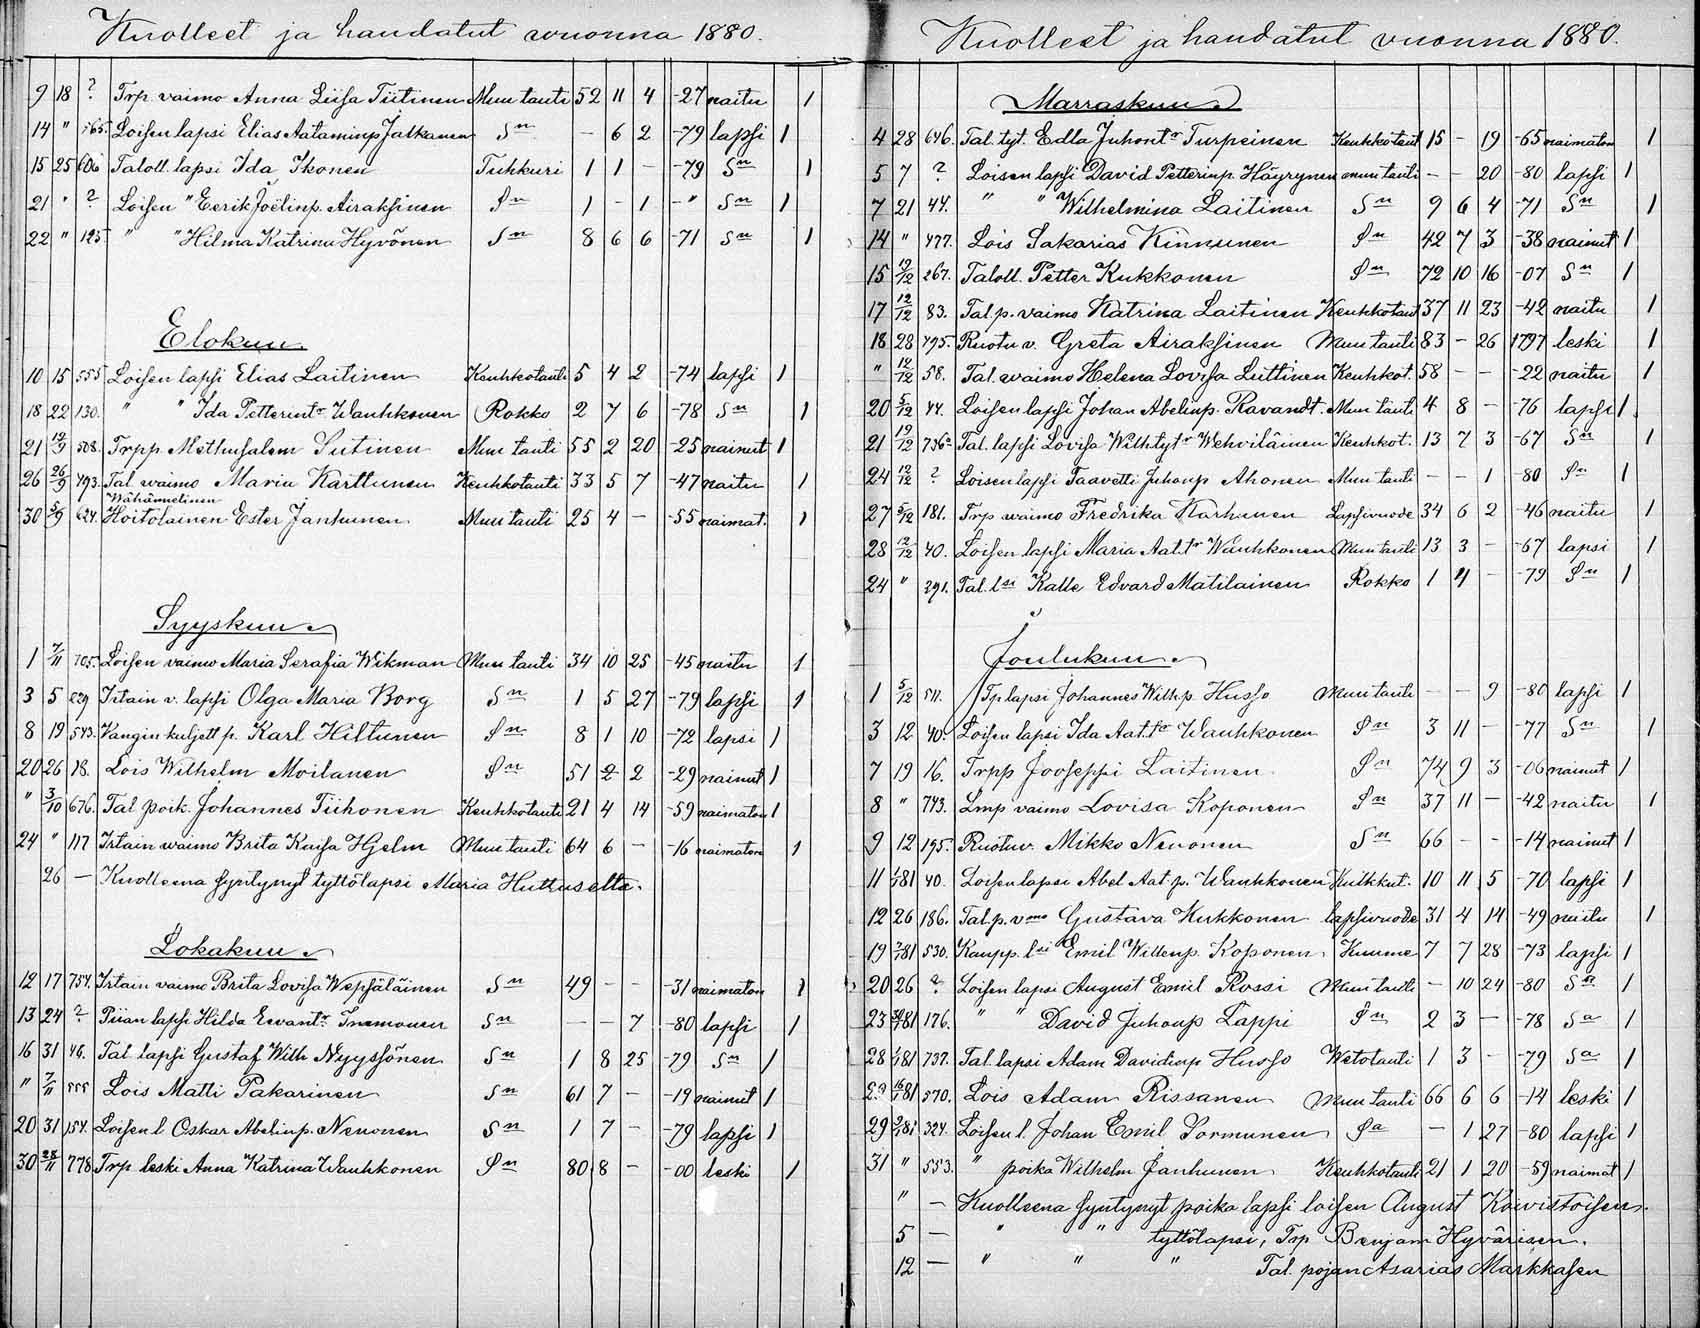 Kuolleet ja haudatut wuonna 1880.
9 18 ? Trp. vaimo Anna Liisa Tiitinen Muu tauti 52 11 4 -27 naitu 1
14 " 765. Loisen lapsi Elias Aataminp Jalkanen Sn - 6 2 -79 lapsi 1
15 25 606 Taloll. lapsi Ida Ikonen Tuhkuri 1 1 - -79 Sn 1
21 " ? Loisen " Eerik Joëlinp. Airaksinen Sn 1 - 1 -" Sn 1
22 " 125 " " Hilma Katrina Hyvönen Sn 8 6 6 -71 Sn 1
Elokuu
10 15 555 Loisen lapsi Elias Laitinen Keuhkotauti 5 4 2 -74 lapsi 1
18 22 130. " " Ida Petterint. Wauhkonen Rokko 2 7 6 -78 Sn 1
21 12/9 508. Trpp Methusalem Sutinen Muu tauti 55 2 20 -25 nainut 1
26 26/9 493. Tal waimo Maria Karttunen Keuhkotauti 33 5 7 -47 naitu 1
Wähämielinen
30 5/9 624. Hoitolainen Ester Janhunen Muu tauti 25 4 - -55 naimat. 1
Syyskuu
1 7/11 705. Loisen vaimo Maria Serafia Wikman Muu tauti 34 10 25 -45 naitu 1
3 5 829 Irtain v. lapsi Olga Maria Borg Sn 1 5 27 -79 lapsi 1
8 19 543. Vangin kuljett p. Karl Hiltunen Sn 8 1 10 -72 lapsi 1
20 26 18. Lois Wilhelm Moilanen Sn 51 2 2 -29 nainut 1
" 3/10 676. Tal poik. Johannes Tiihonen Keuhkotauti 21 4 14 -59 naimaton 1
24 " 117 Irtain waimo Brita Kaisa Hjelm Muu tauti 64 6 - -16 naimaton 1
26 - Kuolleena syntynyt tyttölapsi Maria Huttuselta.
Lokakuu
12 17 754. Irtain vaimo Brita Lovisa Wepsäläinen Sn 49 - - -31 naimaton 1
13 24 ? Piian lapsi Hilda Eevantr. Inemonen Sn - - 7 -80 lapsi 1
16 31 46. Tal lapsi Gustaf Wilh Nyyssönen Sn 1 8 25 -79 Sn 1
" 7/11 555 Lois Matti Pakarinen Sn 61 7 - -19 nainut 1
20 31 154. Loisen l. Oskar Abelinp. Nenonen Sn 1 7 - -79 lapsi 1
30 28/11 778 Trp leski Anna Katrina Wauhkonen Sn 80 8 - -00 leski 1
Kuolleet ja haudatut vuonna 1880.
Marraskuu
4 28 646. Tal. tyt. Edla Juhontr Turpeinen Keuhkotaut 15 - 19 -65 naimaton 1
5 7 ? Loisen lapsi David Petterinp. Häyrynen muu tauti - - 20 -80 lapsi 1
7 21 44. " " Wilhelmina Laitinen Sn 9 6 4 -71 Sn 1
14 " 477. Lois Sakarias Kinnunen Sn 42 7 3 -38 nainut 1
15 12/12 267. Taloll. Petter Kukkonen Sn 72 10 16 -07 Sn 1
17 12/12 83. Tal. p. vaimo Katrina Laitinen Keuhkotaut 37 11 23 -42 naitu 1
18 28 495. Ruotu v. Greta Airaksinen Muu tauti 83 - 26 1797 leski 1
" 12/12 58. Tal. waimo Helena Lovisa Luttinen Keuhkot. 58 - - -22 naitu 1
20 5/12 44. Loisen lapsi Johan Abelinp. Ravandt. Muu tauti 4 8 - -76 lapsi 1
21 12/12 736a Tal. lapsi Lovisa Wilhtytr Wehviläinen Keuhkot. 13 7 3 -67 Sn 1
24 12/12 ? Loisen lapsi Taavetti Juhonp Ahonen Muu tauti - - 1 -80 Sn 1
27 5/12 181. Trp waimo Fredrika Karhunen Lapsivuode 34 6 2 -46 naitu 1
28 12/12 40. Loisen lapsi Maria Aat.tr Wauhkonen Muu tauti 13 3 - -67 lapsi 1
24 " 391. Tal. lsi Kalle Edvard Matilainen Rokko 1 4 - -79 Sn 1
Joulukuu
1 5/12 511. Tp lapsi Johannes Wilh.p. Husso Muu tauti - - 9 -80 lapsi 1
3 12 40. Loisen lapsi Ida Aat.tr Wauhkonen Sn 3 11 - -77 Sn 1
7 19 16. Trpp Jooseppi Laitinen Sn 74 9 3 -06 nainut 1
8 " 743. Lmp vaimo Lovisa Koponen Sn 37 11 - -42 naitu 1
9 12 195. Ruotuv. Mikko Nenonen Sn 66 - - -14 nainut 1
11 1/81 40. Loisen lapsi Abel Aat p. Wauhkonen Kulkkut. 10 11 5 -70 lapsi 1
12 26 186. Tal. p. vmo Gustava Kukkonen lapsivuode 31 4 14 -49 naitu 1
19 2/81 530. Kaupp. lsi Emil Willenp. Koponen Kuume 7 7 28 -73 lapsi 1
20 26 ? Loisen lapsi August Emil Rossi Muu tauti - 10 24 -80 Sa 1
23 /81 176. " " David Juhonp Lappi Sn 2 3 - -78 Sa 1
28 1/81 737. Tal. lapsi Adam Davidinp Husso Wetotauti 1 3 - -79 Sa 1
16/81 570. Lois Adam Rissanen Muu tauti 66 6 6 -14 leski 1
29 2/81 324. Loisen l. Johan Emil Sormunen Sa - 1 27 -80 lapsi 1
31 " 553. " poika Wilhelm Janhunen Keuhkotauti 21 1 20 -59 naimat 1
" - Kuolleena syntynyt poika lapsi loisen August Koivistoisen.
5 - " " tyttölapsi, Trp Benjam Hyvärisen.
12 - " " " Tal. pojan Asarias Markkasen